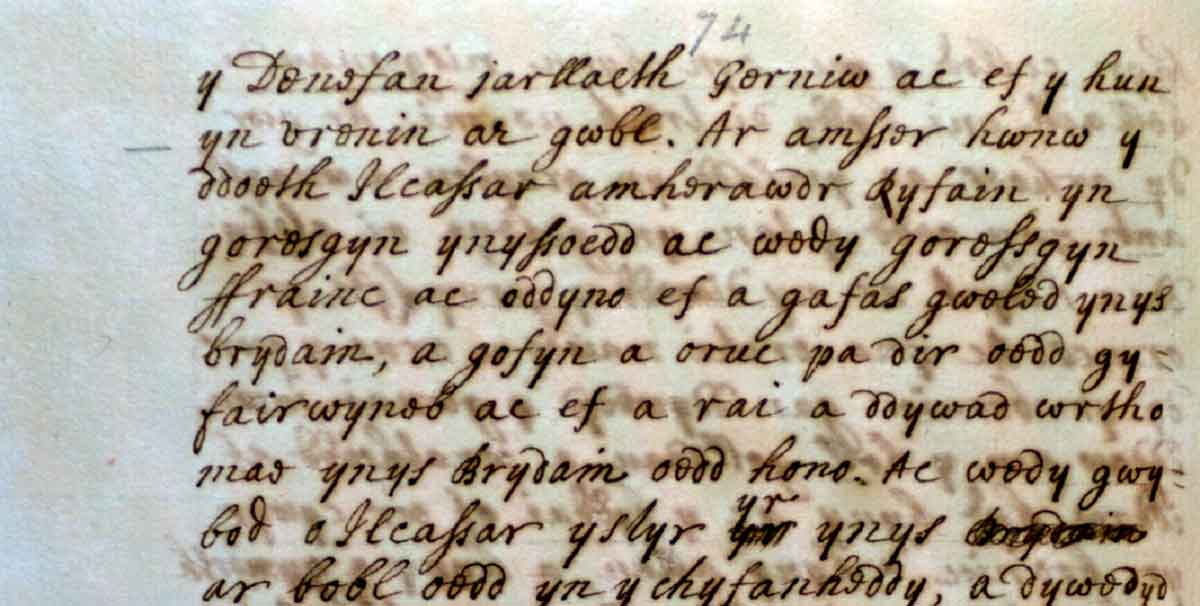 74
y Denefan jarllaeth Gerniw ac ef y hun
yn vrenin ar gwbl. Ar amsser hwnw y
ddoeth Ilcassar amherawdr Ryfain yn
goresgyn ynyssoedd ac wedy goressgyn
ffrainc ac oddyno ef a gafas gweled ynys
brydain, a gofyn a oruc pa dir oedd gy-
fairwyneb ac ef a rai a ddywad wrtho
mae ynys Brydain oedd hono. Ac wedy gwy-
bod o Ilcassar ystyr yr ynys
ar bobl oedd yn y chyfanheddy, a dywedyd